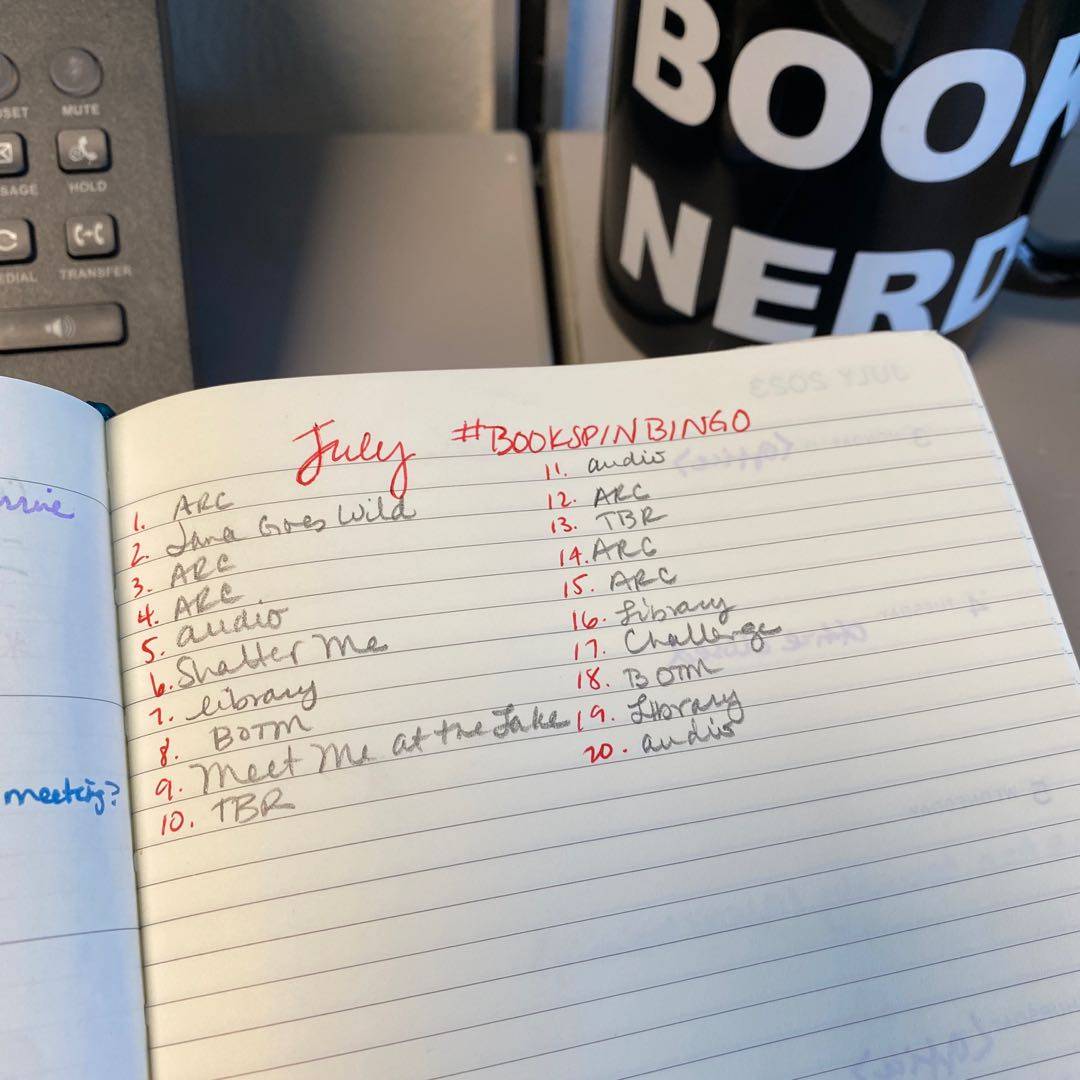 MUTE
HOLD
TRANSFER
BOOK
NERD
July #BOOKSPINBINGO
1. ARC
2. Jana Goes Wild
3. ARC
4. ARC
5. audio
6. Shatter Me
7. library
8. BOTM
9. Meet Me at the Lake
10. TBR
11. audio
12. ARC
13. TBR
14. ARC
15. ARC
16. Library
17. Challenge
18. BOTM
19. Library
20. audio
meeting?
JULY 2023